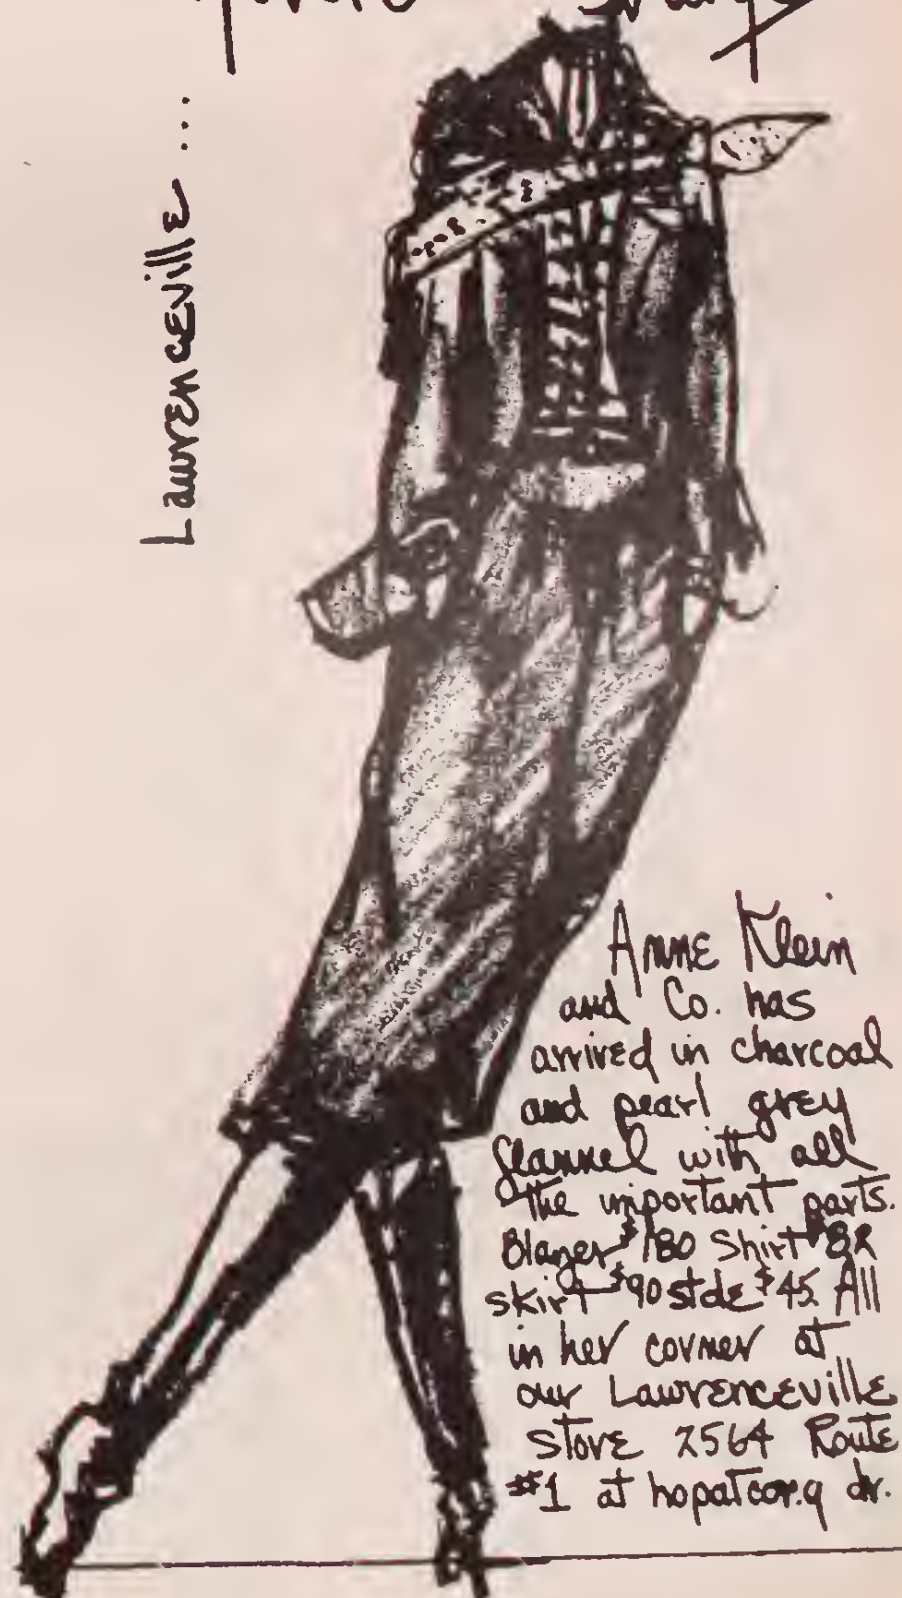 Lawrenceville ...
Anne Klein
and Co. has
arrived in charcoal
and pearl grey
flannel with all
the important parts.
Blazer $180 Shirt $82
skirt $90 stole $45 All
in her corner at
our Lawrenceville
store 2564 Route
#1 at hopatcong dr.